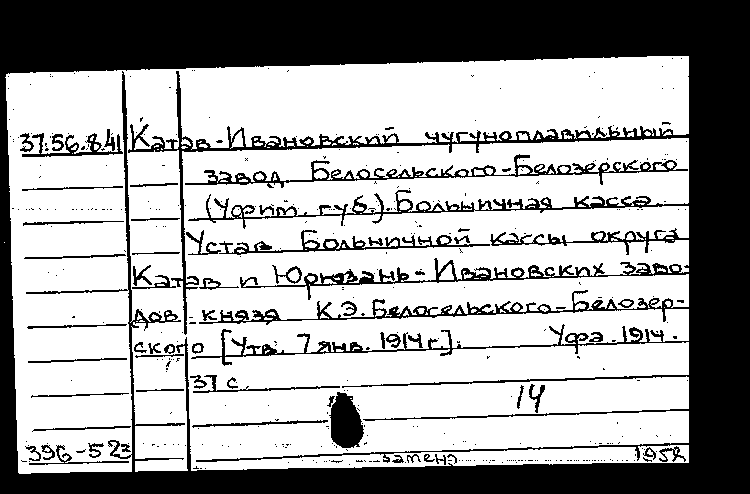 37.56.8.41 Катав-Ивановский чугуноплавильный
завод Белосельского-Белозерского
(Уфим. губ.). Больничная касса.
Устав Больничной кассы округа
Катав и Юрюзань-Ивановских заво-
дов князя К.Э. Белосельского-Белозер-
ского [Утв. 7 янв. 1914 г.]. Уфа. 1914.
37 с.
14
396-523
замена 1952